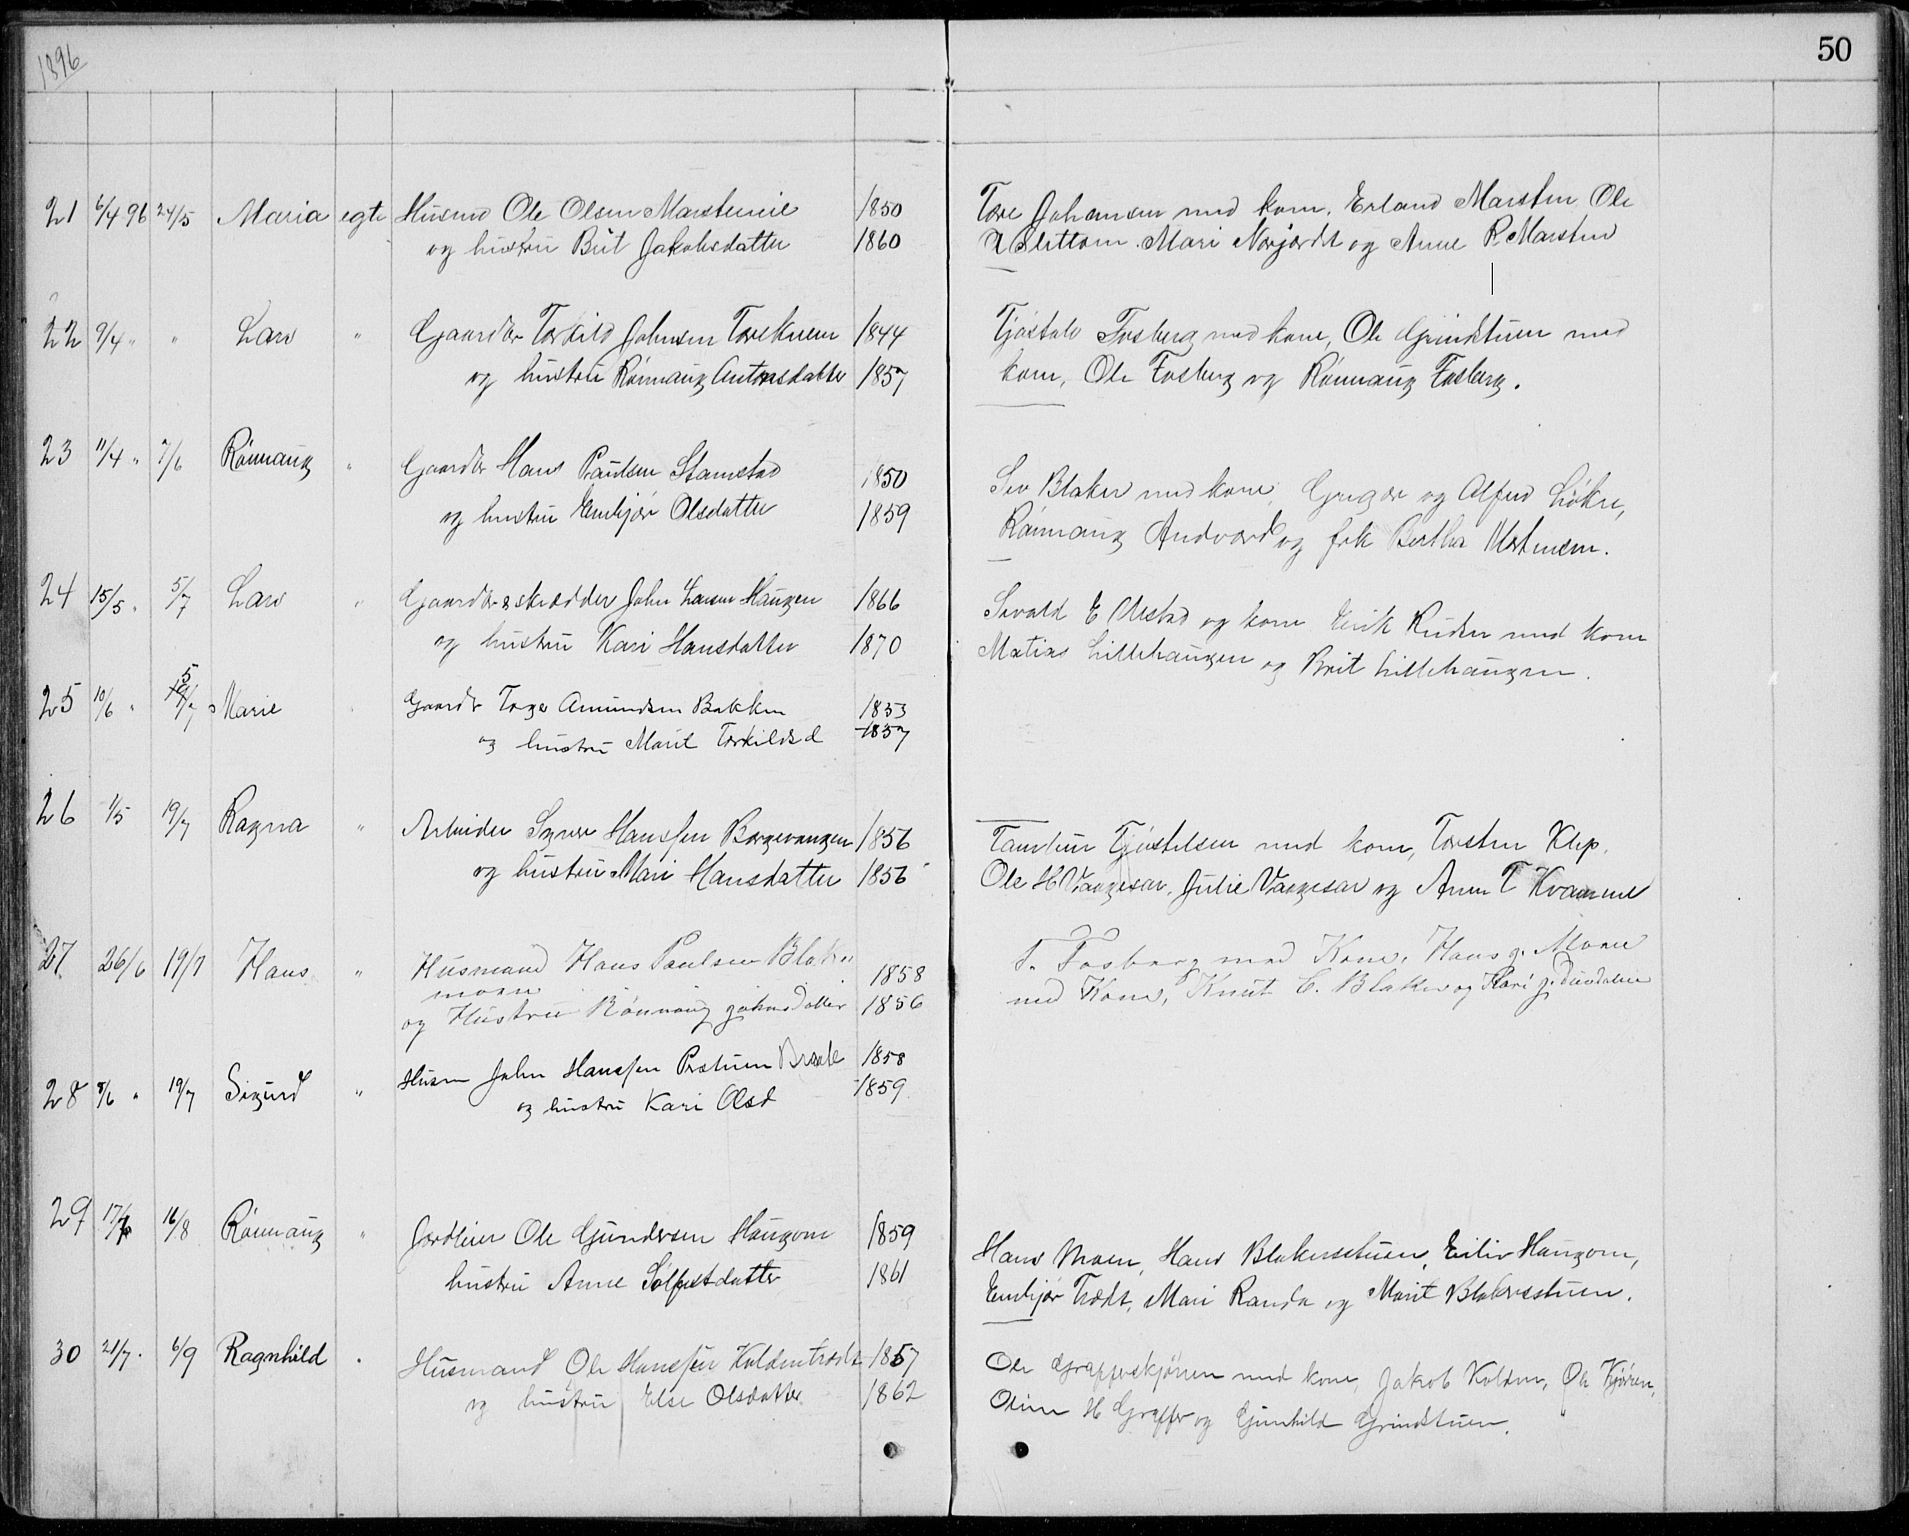 1896
50
21 6/4 96 24/5 Maria egte Husmd Ole Olsen Marsteinie 1850
og hustru Brit Jakobsdatter 1860
Tore Johansen med kone. Erland Marsten Ole
Slettom. Mari Norjordet og Anne R. Marsten
22 9/4 " " Lars " Gaardbr Torkild Johnsen 1844
og hustru Rönnaug Antonsdatter 1857
Tjöstolv Fosberg med kone, Ole Grindstuen med
kone, Ole Fosberg og Rönnaug Fosberg.
23 11/4 " 7/6 Rönnaug " Gaardbr Hans Paulsen Stamstad 1850
og hustru Embjør Olsdatter 1859
Blaker med kone, Gregar og Alfred Løkre,
Rönnaug Andvord og frk Bertha Mortensen.
24 15/5 " 5/7 Lars " Gaardbr & skrædder John Larsen Haugen 1866
og hustru Kari Hansdatter 1870
Sevald E Ulstad og kone Erik Ruden med kone
Matias Lillehaugen og Brit Lillehaugen.
25 10/6 " 5/7 Marie Gaardbr Toger Amundsen Bakken 1853
og hustru Marit Torkildsd 1857
26 1/5 19/7 Ragna " Arbeider Syver Hanssen Borgevangen 1856
og hustru Mari Hansdatter 1856
Tjöstelsen med kone, Torsten Klep.
Ole H Vangesar, Julie Vangesar og Anne T Kvamme
27 26/6 19/7 Hans " Husmand Hans Paulsen Blaker
moen 1858
og Hustru Rönnaug Johnsdatter 1856
T. Fosberg med Kone, Hans J. Moen
med Kone, Knut C. Blaker og Kari J.
28 8/6 " 19/7 Sigurd " Husm John Hanssen Bræk 1858
og hustru Kari Olsd 1859
29 17/6 16/8 Rönnaug " Jordleier Ole Gundersen Haugom 1859
hustru Anne Sølfestdatter 1861
Hans Moen, Hans Blakersstuen, Eiliv Haugom,
Embjør Trædt, Mari Randa og Marit Blakersstuen.
30 21/7 . 6/9 Ragnhild . Husmand Ole Hanssen Koldentrædet 1857
og hustru Else Olsdatter 1862
Ole Grafferskjønen med kone, Jakob Kolden, Ole Kjønen,
Oline H Graffer og Gunhild Grindstuen.